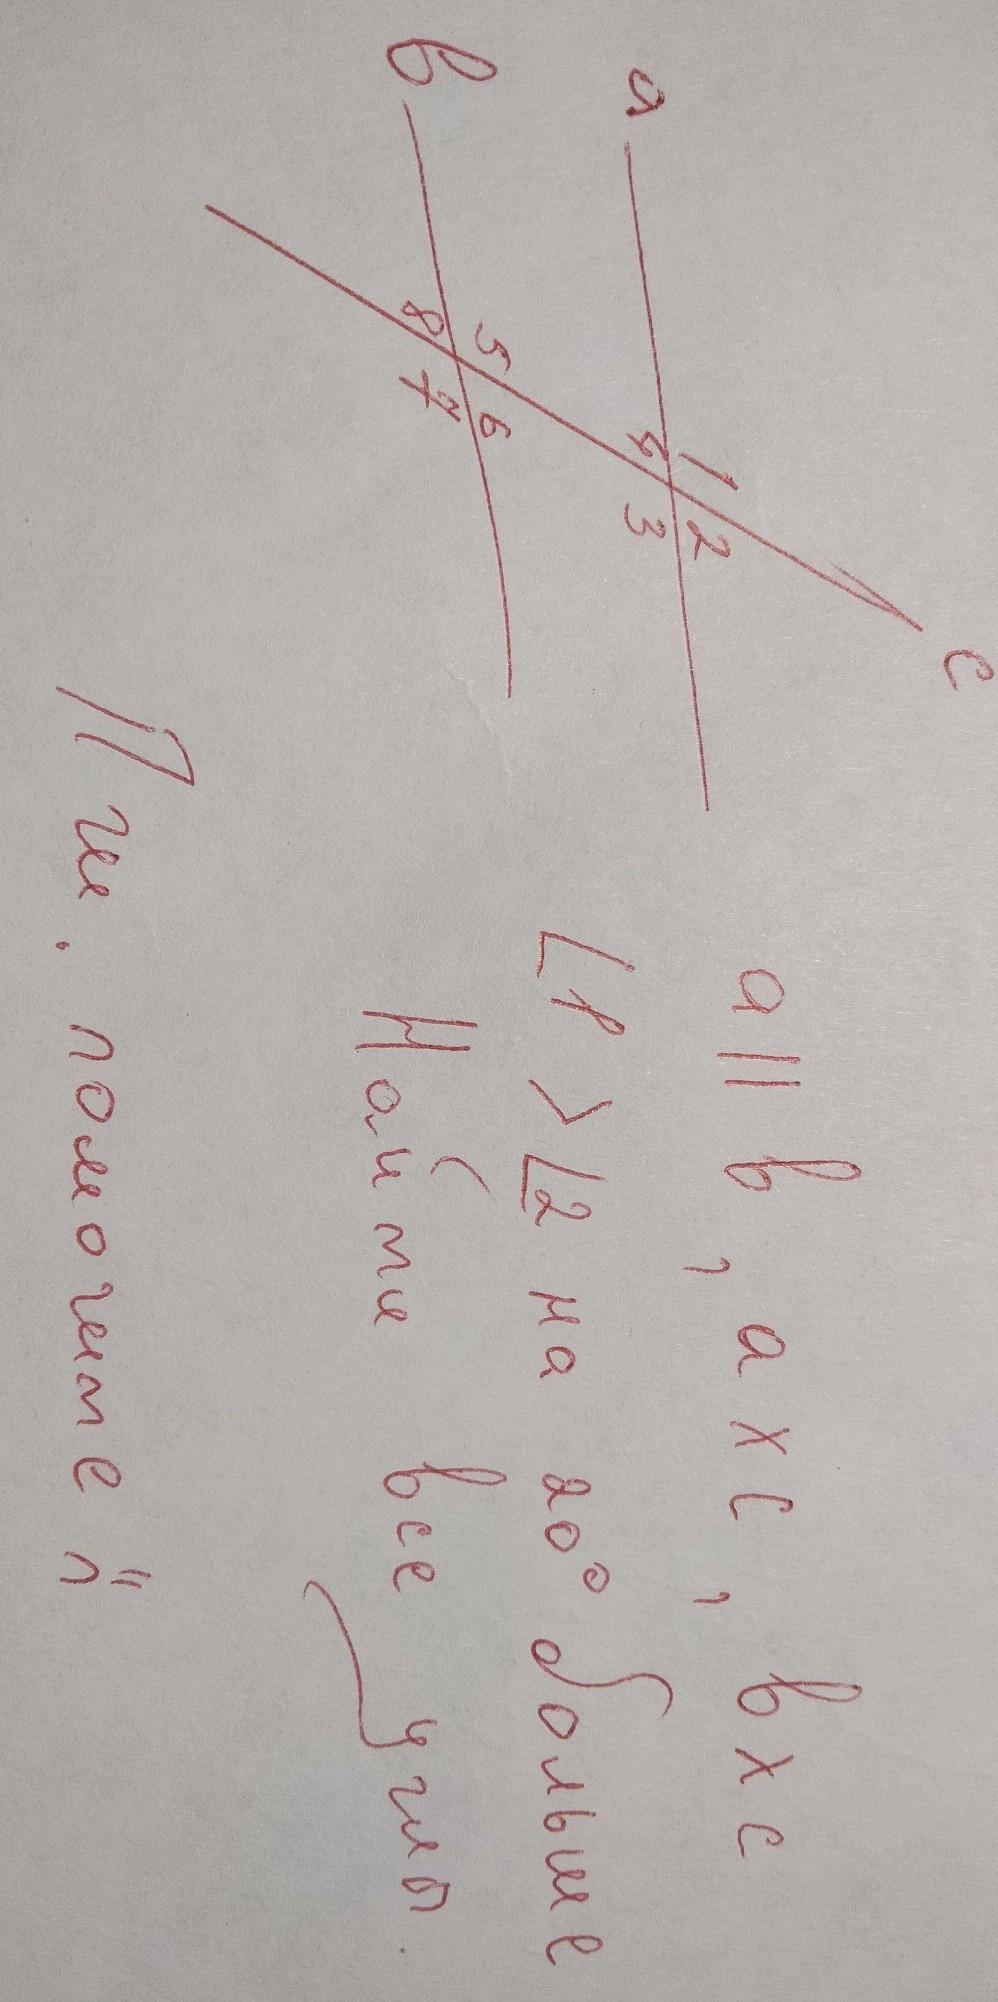 c
a
1 2
4 3
в
5 6
8 7
a || в, a x c, в x c
∠1 > ∠2 на 20° больше
Найти все углы.
Пж. помогите й